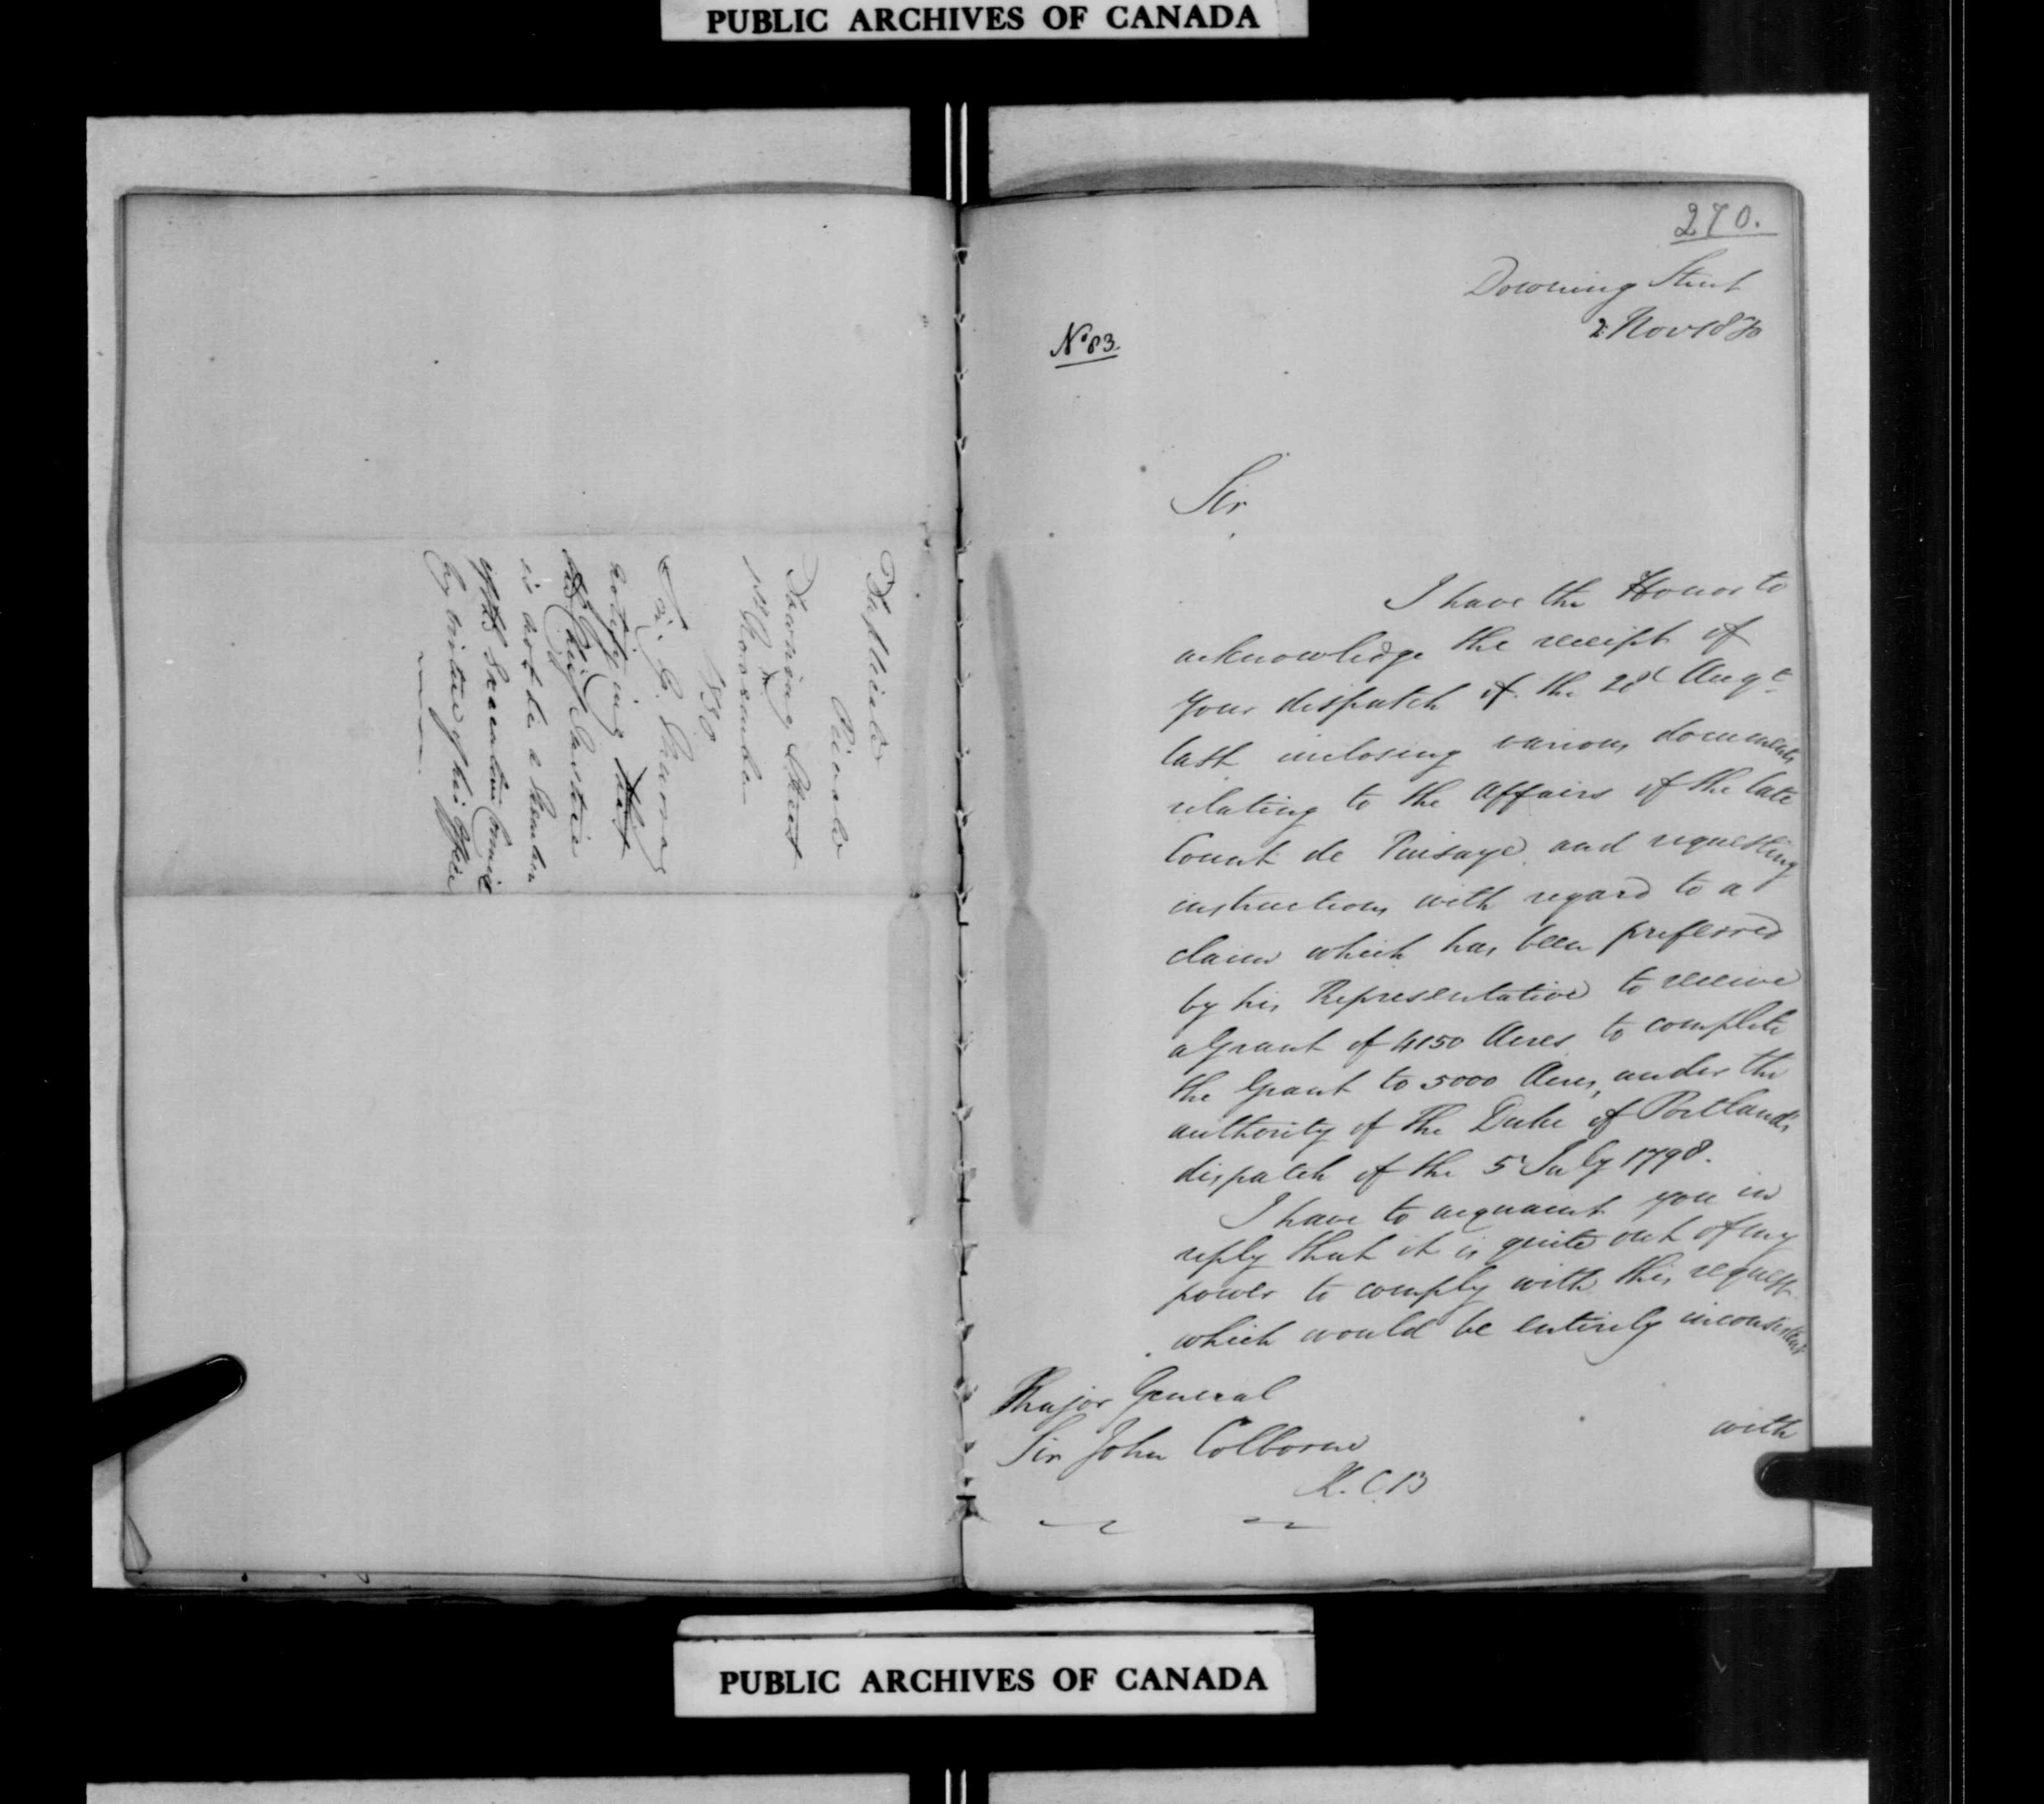 PUBLIC ARCHIVES OF CANADA
Duplicate
Private
Downing Street
November
1830
Sir G. Murray
notifying that
the Chief Justice
is not to be a Member
of the Executive Council
by virtue of his Office
270.
Downing Street
2 Nov 1830
No 83.
Sir
I have the Honor to
acknowledge the receipt of
your dispatch of the 28th Augt
last inclosing various documents
relating to the affairs of the late
Count de Puisaye and requesting
instructions with regard to a
claim which has been preferred
by his Representative to receive
a Grant of 4150 Acres to complete
the Grant to 5000 Acres, under the
authority of the Duke of Portland's
dispatch of the 5 July 1798.
I have to acquaint you in
reply that it is quite out of my
power to comply with this request
which would be entirely inconsistent
with
Major General
Sir John Colborne
K.C.B
PUBLIC ARCHIVES OF CANADA